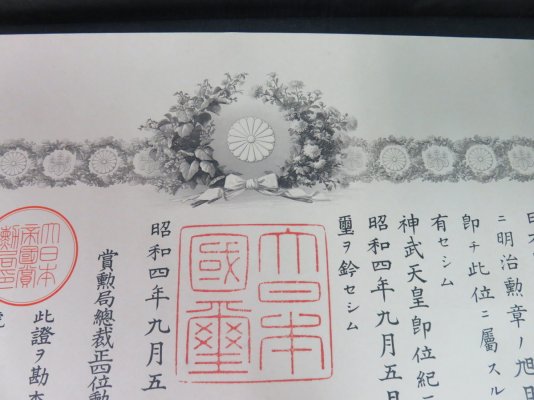 ニ明治勲章ノ旭日
卽チ此位ニ屬スル
有セシム
神武天皇卽位紀
昭和四年九月五日
璽ヲ鈐セシム
大日本
國璽
昭和四年九月五
賞勲局總裁正四位勲
此證ヲ勘
大日本
帝國賞
勲局印